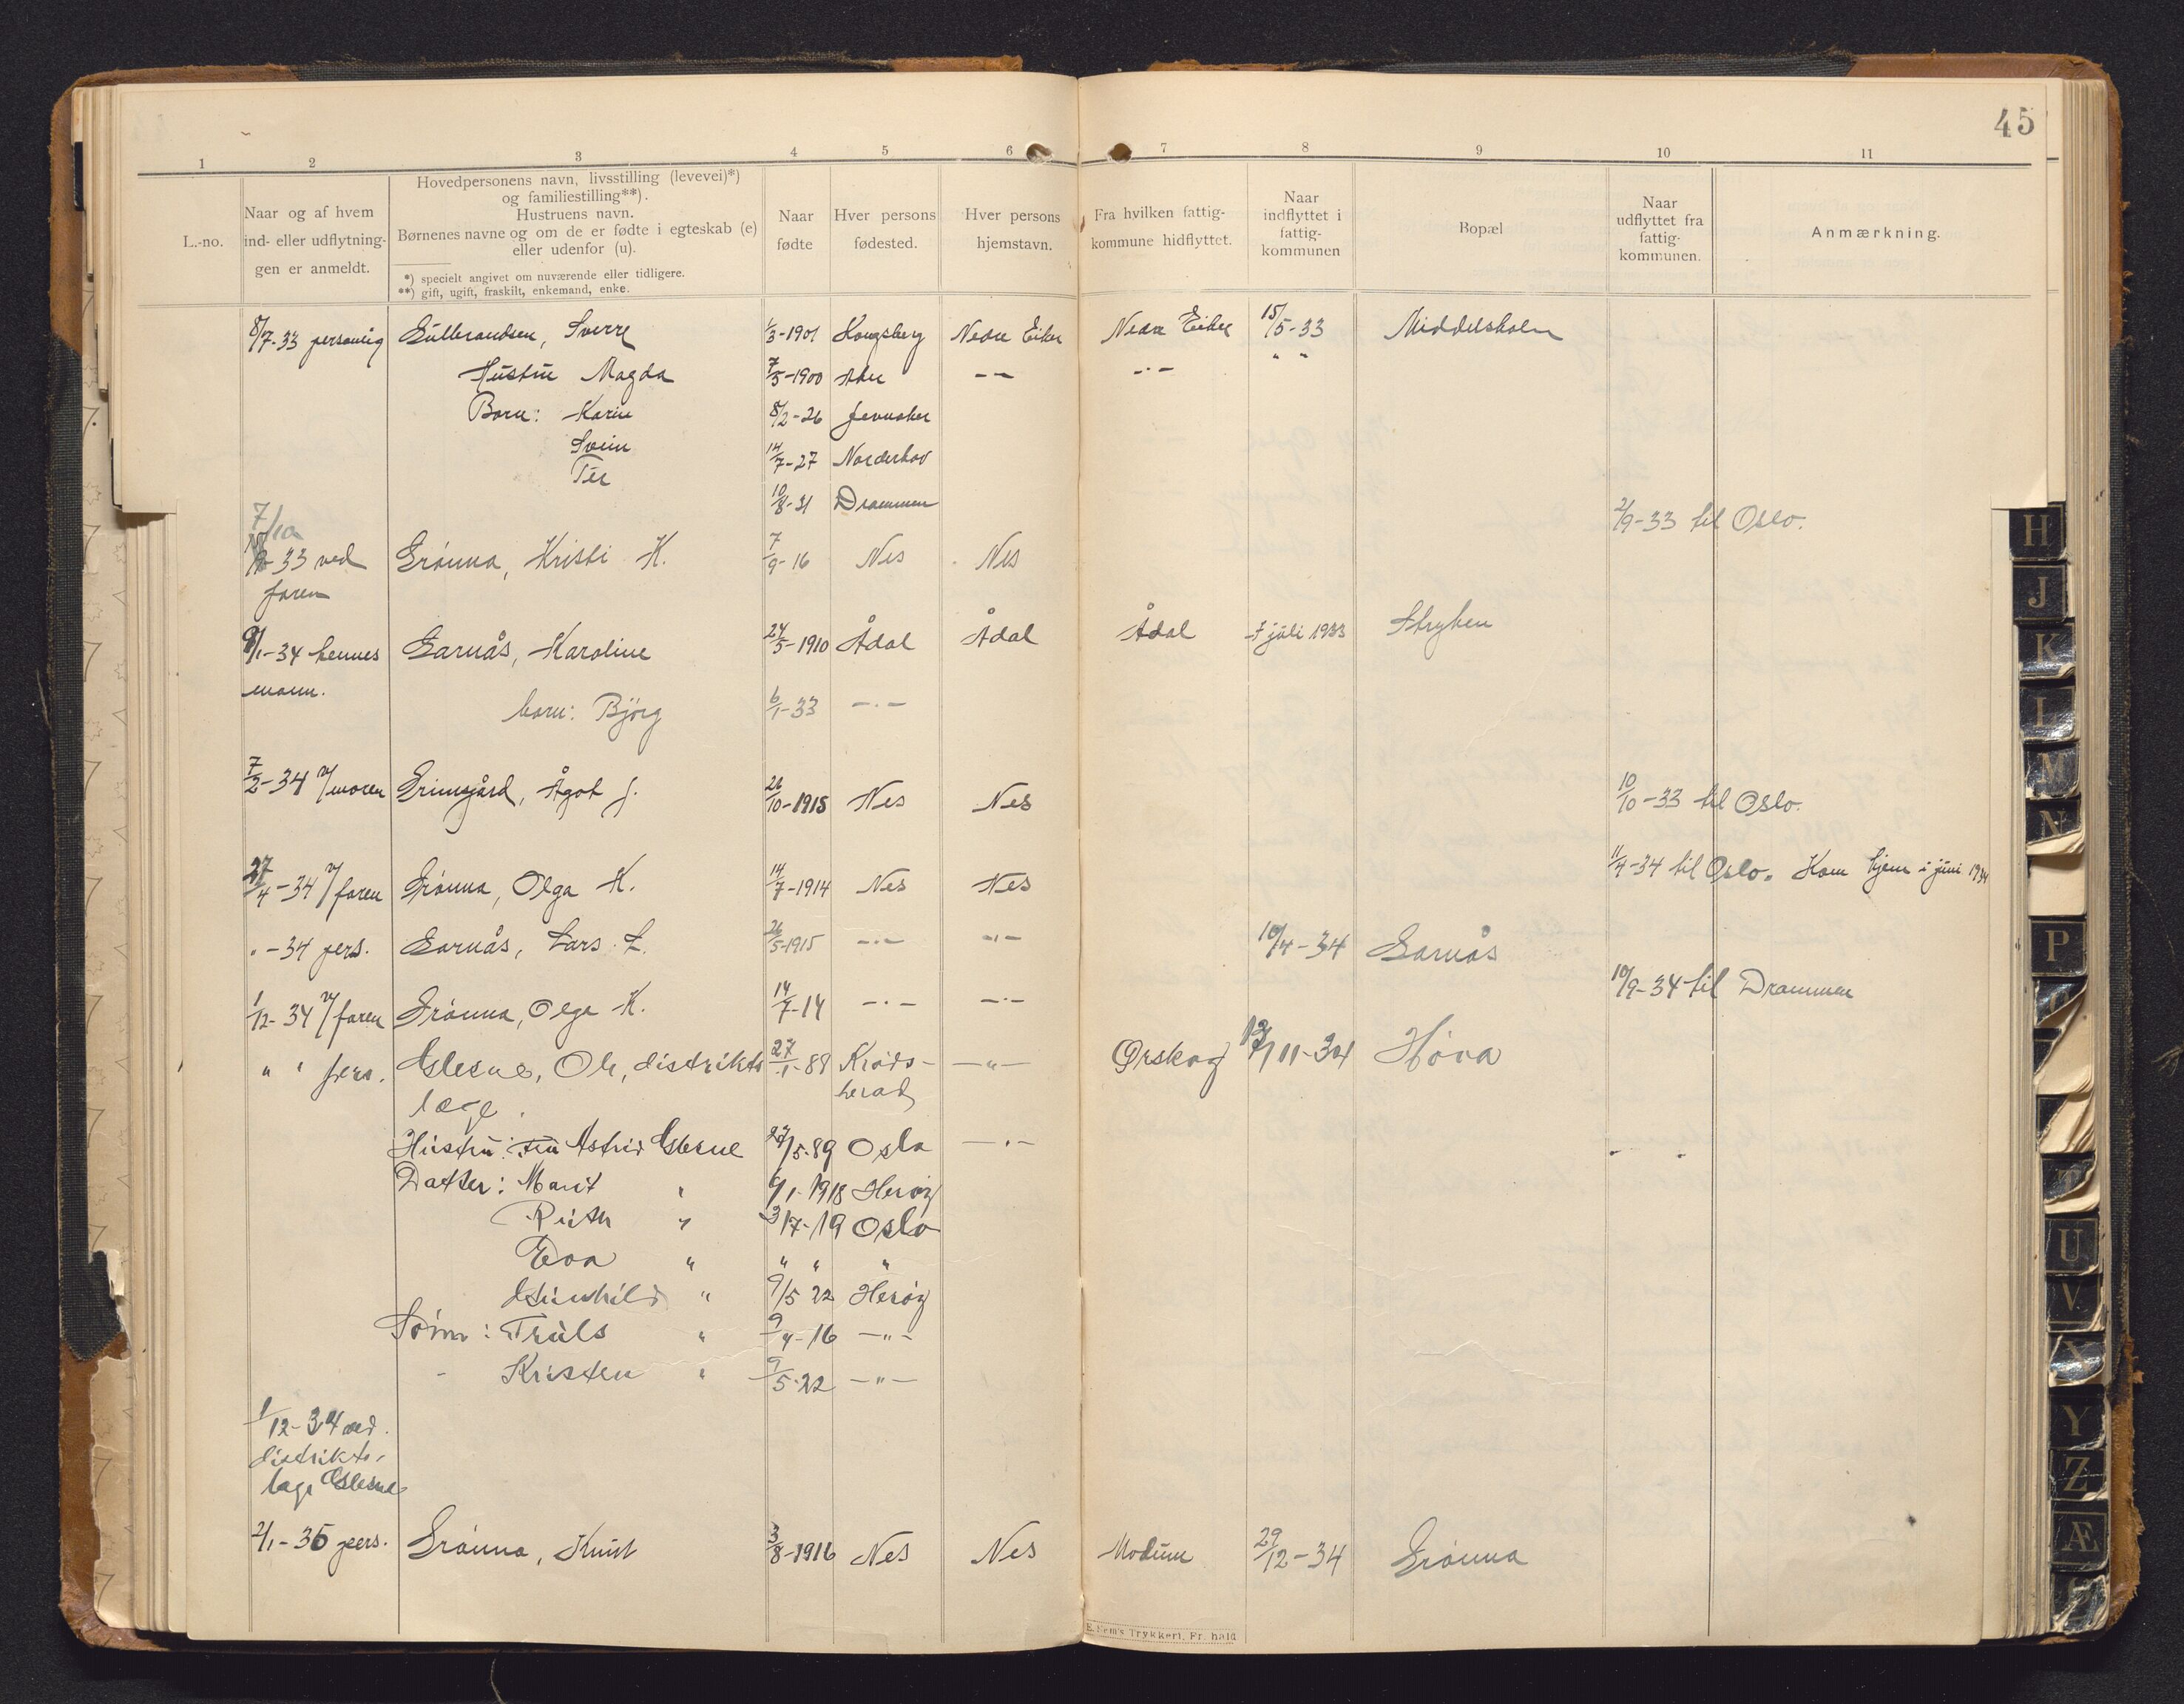 45
1 2 3 4 5 6 7 8 9 10 11
L.-no.
Naar og af hvem
ind- eller udflytnin-
gen er anmeldt.
Hovedpersonens navn, livsstilling (levevei)*)
og familiestilling**).
Hustruens navn.
Børnenes navne og om de er fødte i egteskab (e)
eller udenfor (u).
*) specielt angivet om nuværende eller tidligere.
**) gift, ugift, fraskilt, enkemand, enke.
Naar
fødte
Hver persons
fødested.
Hver persons
hjemstavn.
Fra hvilken fattig-
kommune hidflyttet.
Naar
indflyttet i
fattig-
kommunen
Bopæl
Naar
udflyttet fra
fattig-
kommunen.
Anmærkning.
8/7-33 personlig Gulbrandsen, Sverre 1/3-1901 Kongsberg Nedre Eiker Nedre Eiker 15/5-33 Middelskolen
Hustru Magda 7/5-1900 -"- -"- " "
Barn: Karin 8/2-26 Jevnaker
Svein 14/7-27 Norderhov
Per 10/8-31 Drammen
7/10
-33 ved Grönna, Kristi K. 7/9-16 Nes Nes 2/9-33 til Oslo.
faren
9/1-34 hennes Garnås, Karoline 24/5-1910 Ådal Ådal Ådal 7 juli 1933 Stryken
mann.
barn: Björg 6/1-33 -"-
7/2-34 v/moren Grimsgård, Ågot J. 26/10-1915 Nes Nes 10/10-33 til Oslo.
27/4-34 v/faren Grönna, Olga K. 14/7-1914 Nes Nes 11/4-34 til Oslo. Kom hjem i juni 1934
" -34 pers. Garnås, Lars L. 26/5-1915 -"- -"- 10/4-34 Garnås
1/12-34 v/faren Grönna, Olga K. 14/7-14 -"- -"- 10/9-34 til Drammen
" " pers. Glesne, Ole, distrikts 27/1-89 Kröds- -"- Ørskog 11-34 Höva
læge. herad
Hustru: Fru Astrid Glesne 27/5-89 Oslo -"-
Datter: Marit " 6/1-1918 Heröy
Ruth " 3/7-19 Oslo
Eva " " " "
Gunhild " 9/5 22 Heröy
Sönn: Truls " 9/4-16 -"-
- Kristen " 9/5-22 -"-
1/12-34 ved
distrikts-
læge Glesne
2/1-35 pers. Grönna, Knut 3/8-1916 Nes Nes Modum 29/12-34 Grönna
E. Sem's Trykkeri, Fr. hald
H
J
K
L
M
N
P
T
U
V
X
Y
Z
Æ